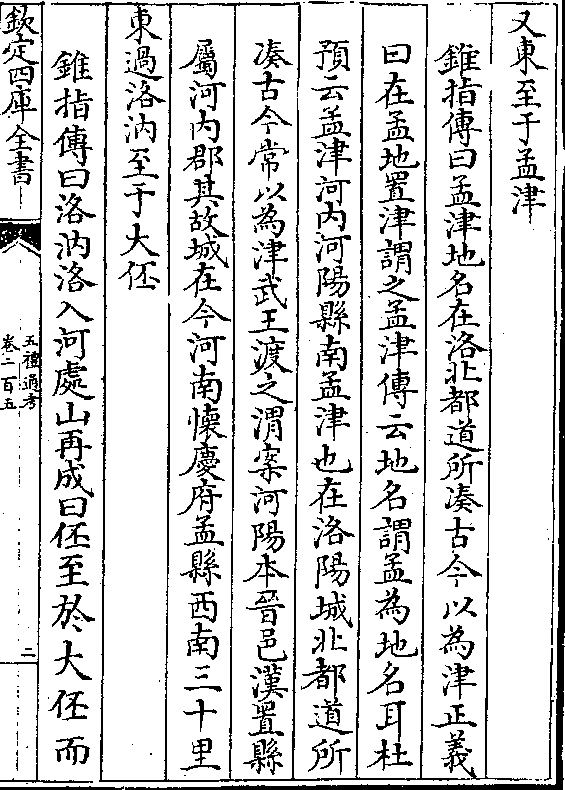 又東至于孟津
錐指傳曰孟津地名在洛北都道所凑古今以為津正義
曰在孟地置津謂之孟津傳云地名謂孟為地名耳杜
預云孟津河内河陽縣南孟津也在洛陽城北都道所
凑古今常以為津武王渡之渭案河陽本晉邑漢置縣
屬河内郡其故城在今河南懷慶府孟縣西南三十里
東過洛汭至于大伾
錐指傳曰洛汭洛入河處山再成曰伾至於大伾而
欽定四庫全書
五禮通考
卷二百五
二